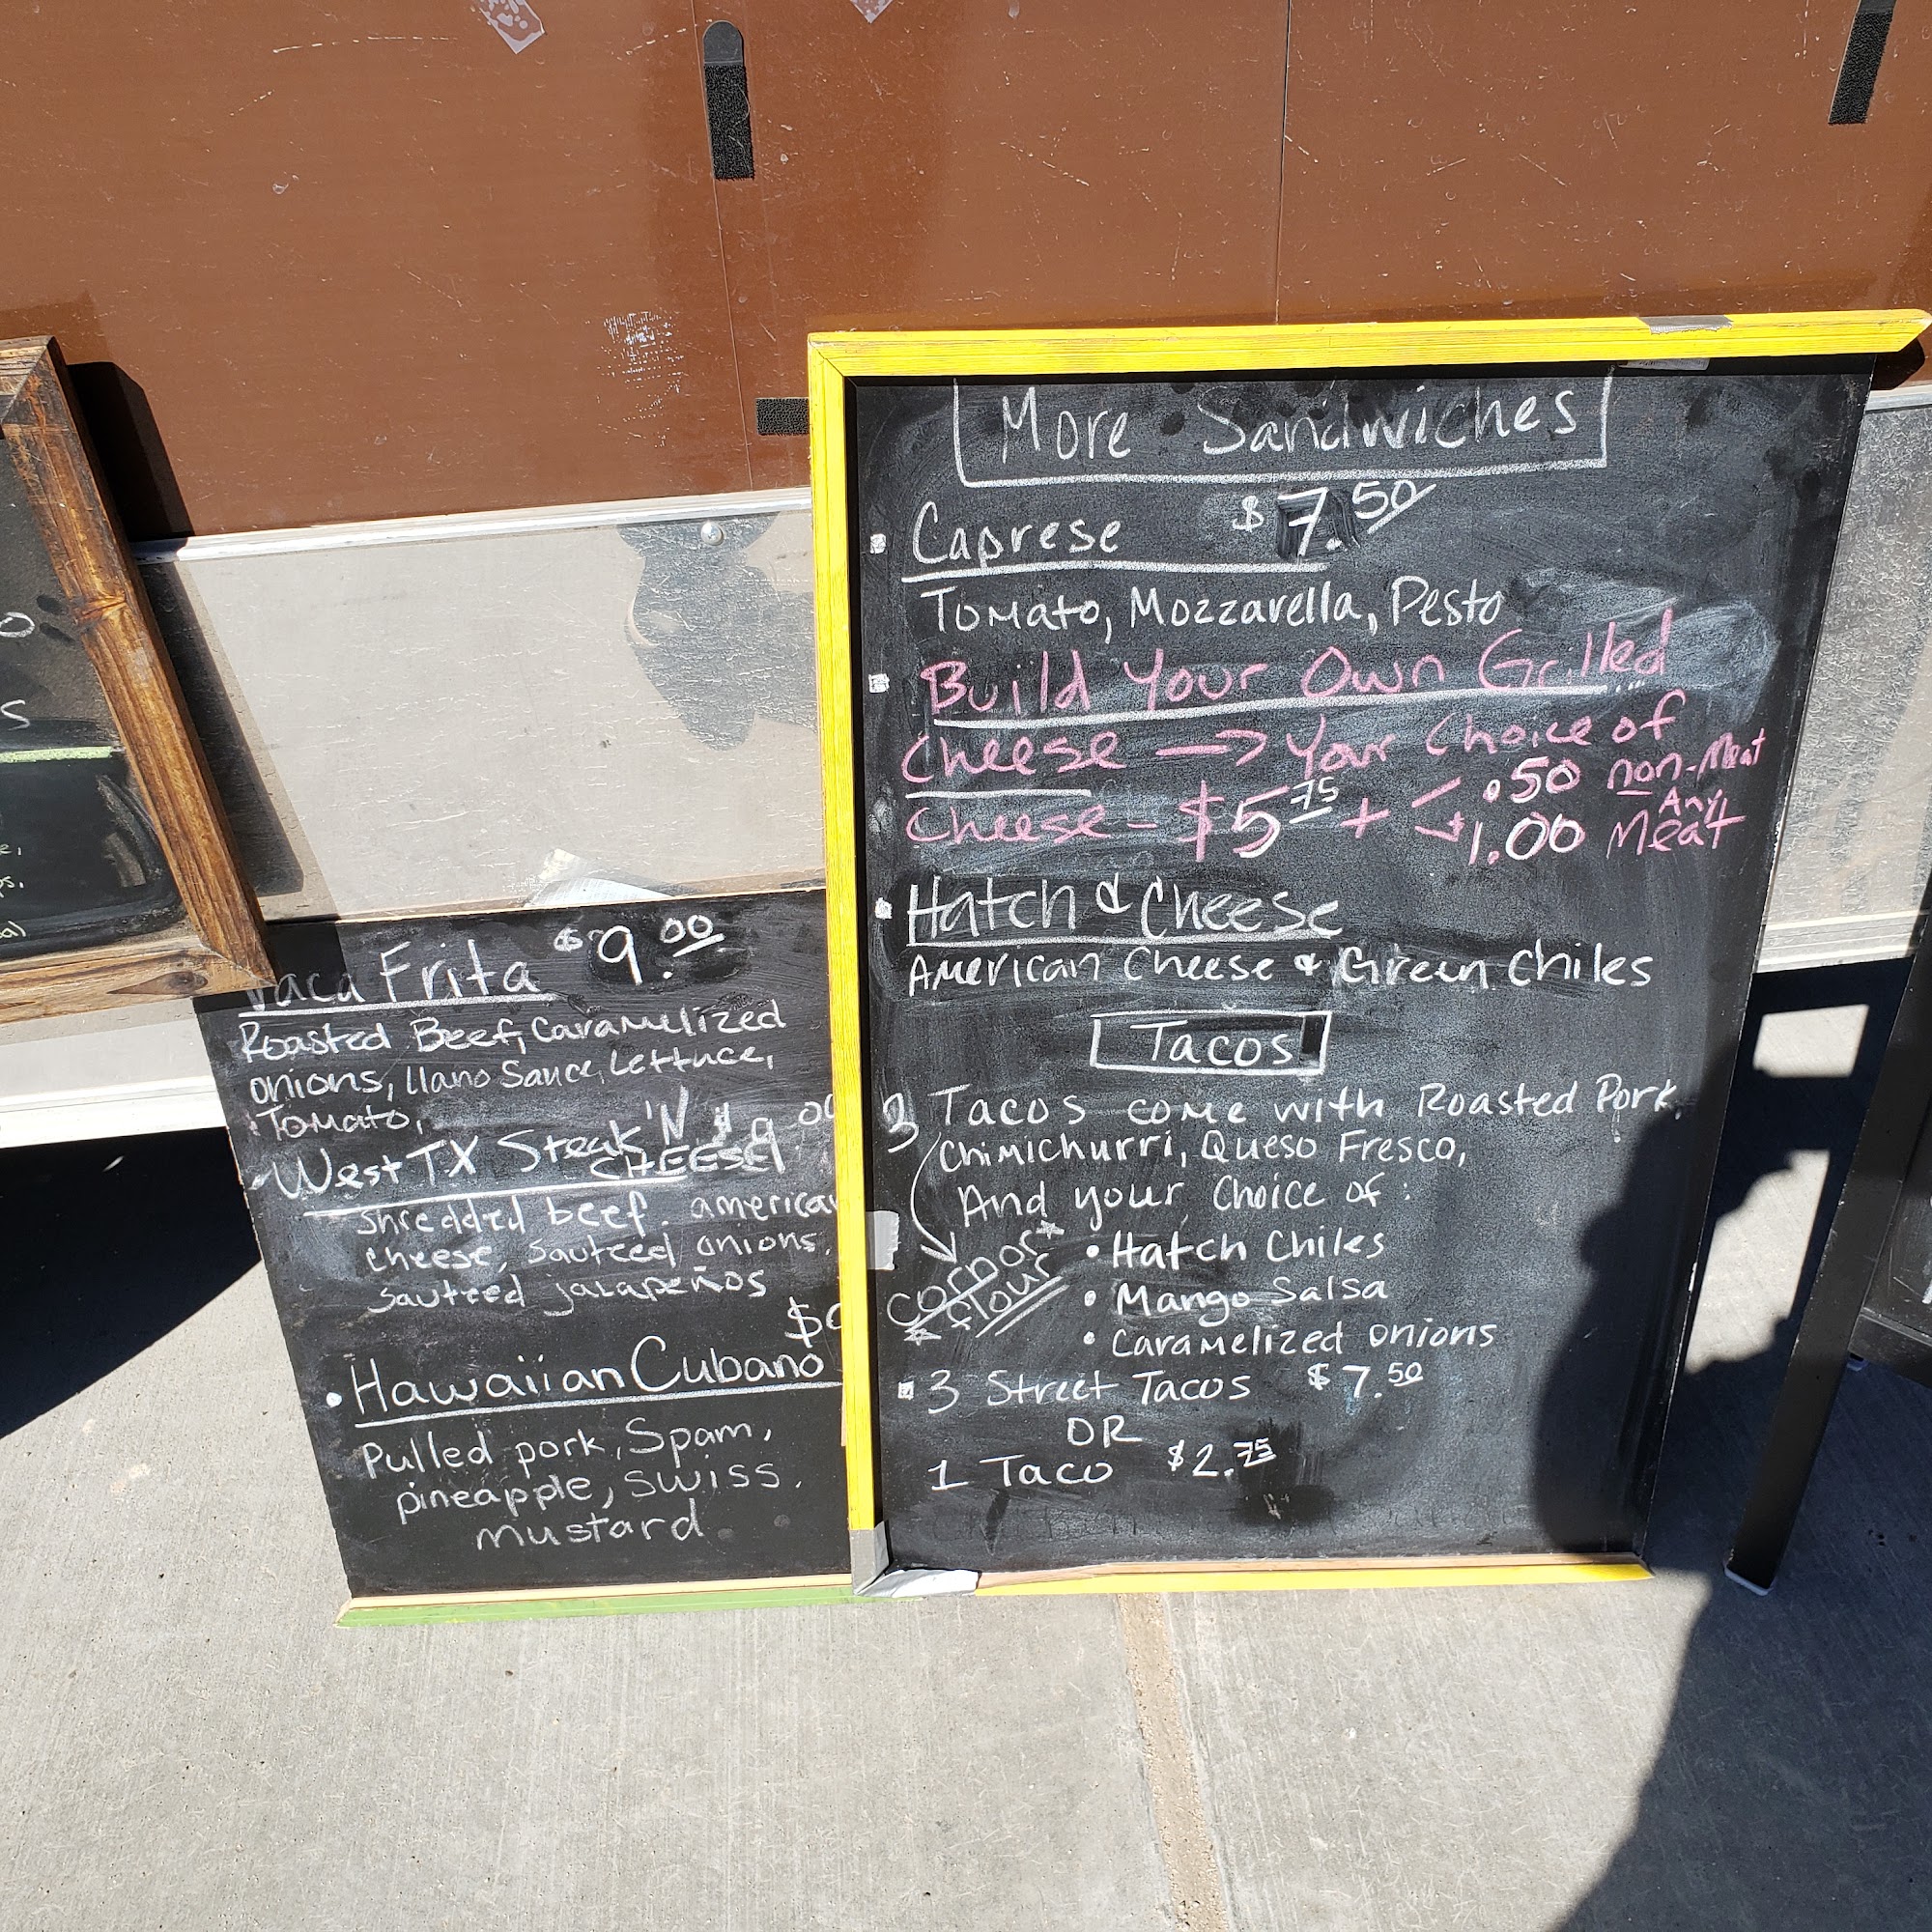 Vaca Frita $9.00
Roasted Beef, Caramelized
onions, Llano Sauce, Lettuce,
Tomato,
West TX Steak 'N
CHEESE
shredded beef. american
cheese, sauteed onions.
sauteed jalapeños
Hawaiian Cubano
Pulled pork, Spam,
pineapple, swiss.
mustard
More Sandwiches
Caprese $7.50
Tomato, Mozzarella, Pesto
Build Your Own Grilled
Cheese → Your Choice of
Cheese - $5.75 + .50 non-Meat
1.00 Any Meat
Hatch & Cheese
American Cheese & Green Chiles
Tacos
3 Tacos come with Roasted Pork,
Chimichurri, Queso Fresco,
And your choice of:
• Hatch Chiles
• Mango Salsa
• Caramelized onions
corn or
flour
3 Street Tacos $7.50
OR
1 Taco $2.75